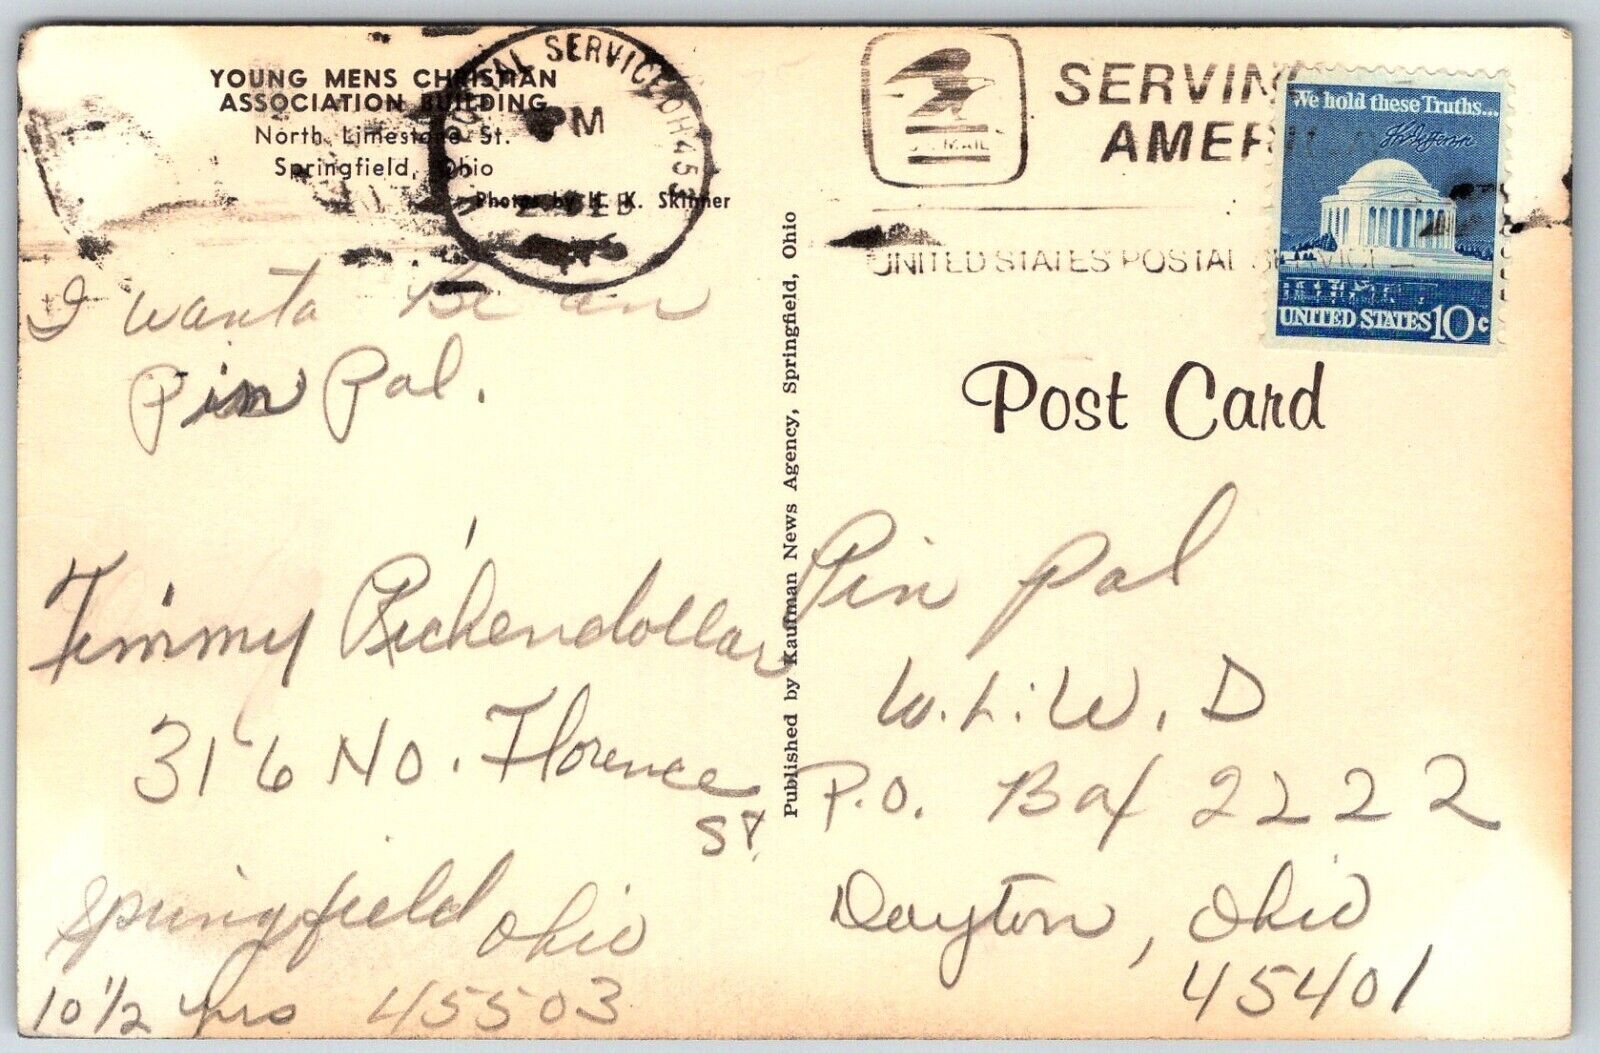 YOUNG MENS CHRISTIAN
ASSOCIATION BUILDING
North Limestone St.
Springfield, Ohio
Photos by H. K. Skinner
SERVICE OH 45
PM
FEB
U.S. MAIL
SERVING
AMERICA
UNITED STATES POSTAL SERVICE
We hold these Truths...
Th Jefferson
UNITED STATES 10c
I wanta be an
Pin Pal.
Timmy Rickendollar
316 No. Florence
St.
Springfield Ohio
10 1/2 yrs 45503
Published by Kaufman News Agency, Springfield, Ohio
Post Card
Pin Pal
W.L.W.D
P.O. Box 2222
Dayton, Ohio
45401